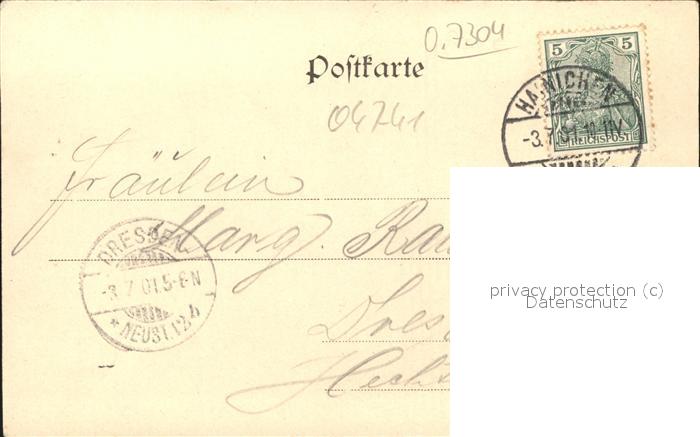 0.7304
Postkarte
5 5
REICHSPOST
HAINICHEN
-3.7.01.
04741
Fräulein
Marg.
DRESDEN
-3.7.01.5-6N
* NEUST.12.b
privacy protection (c)
Datenschutz